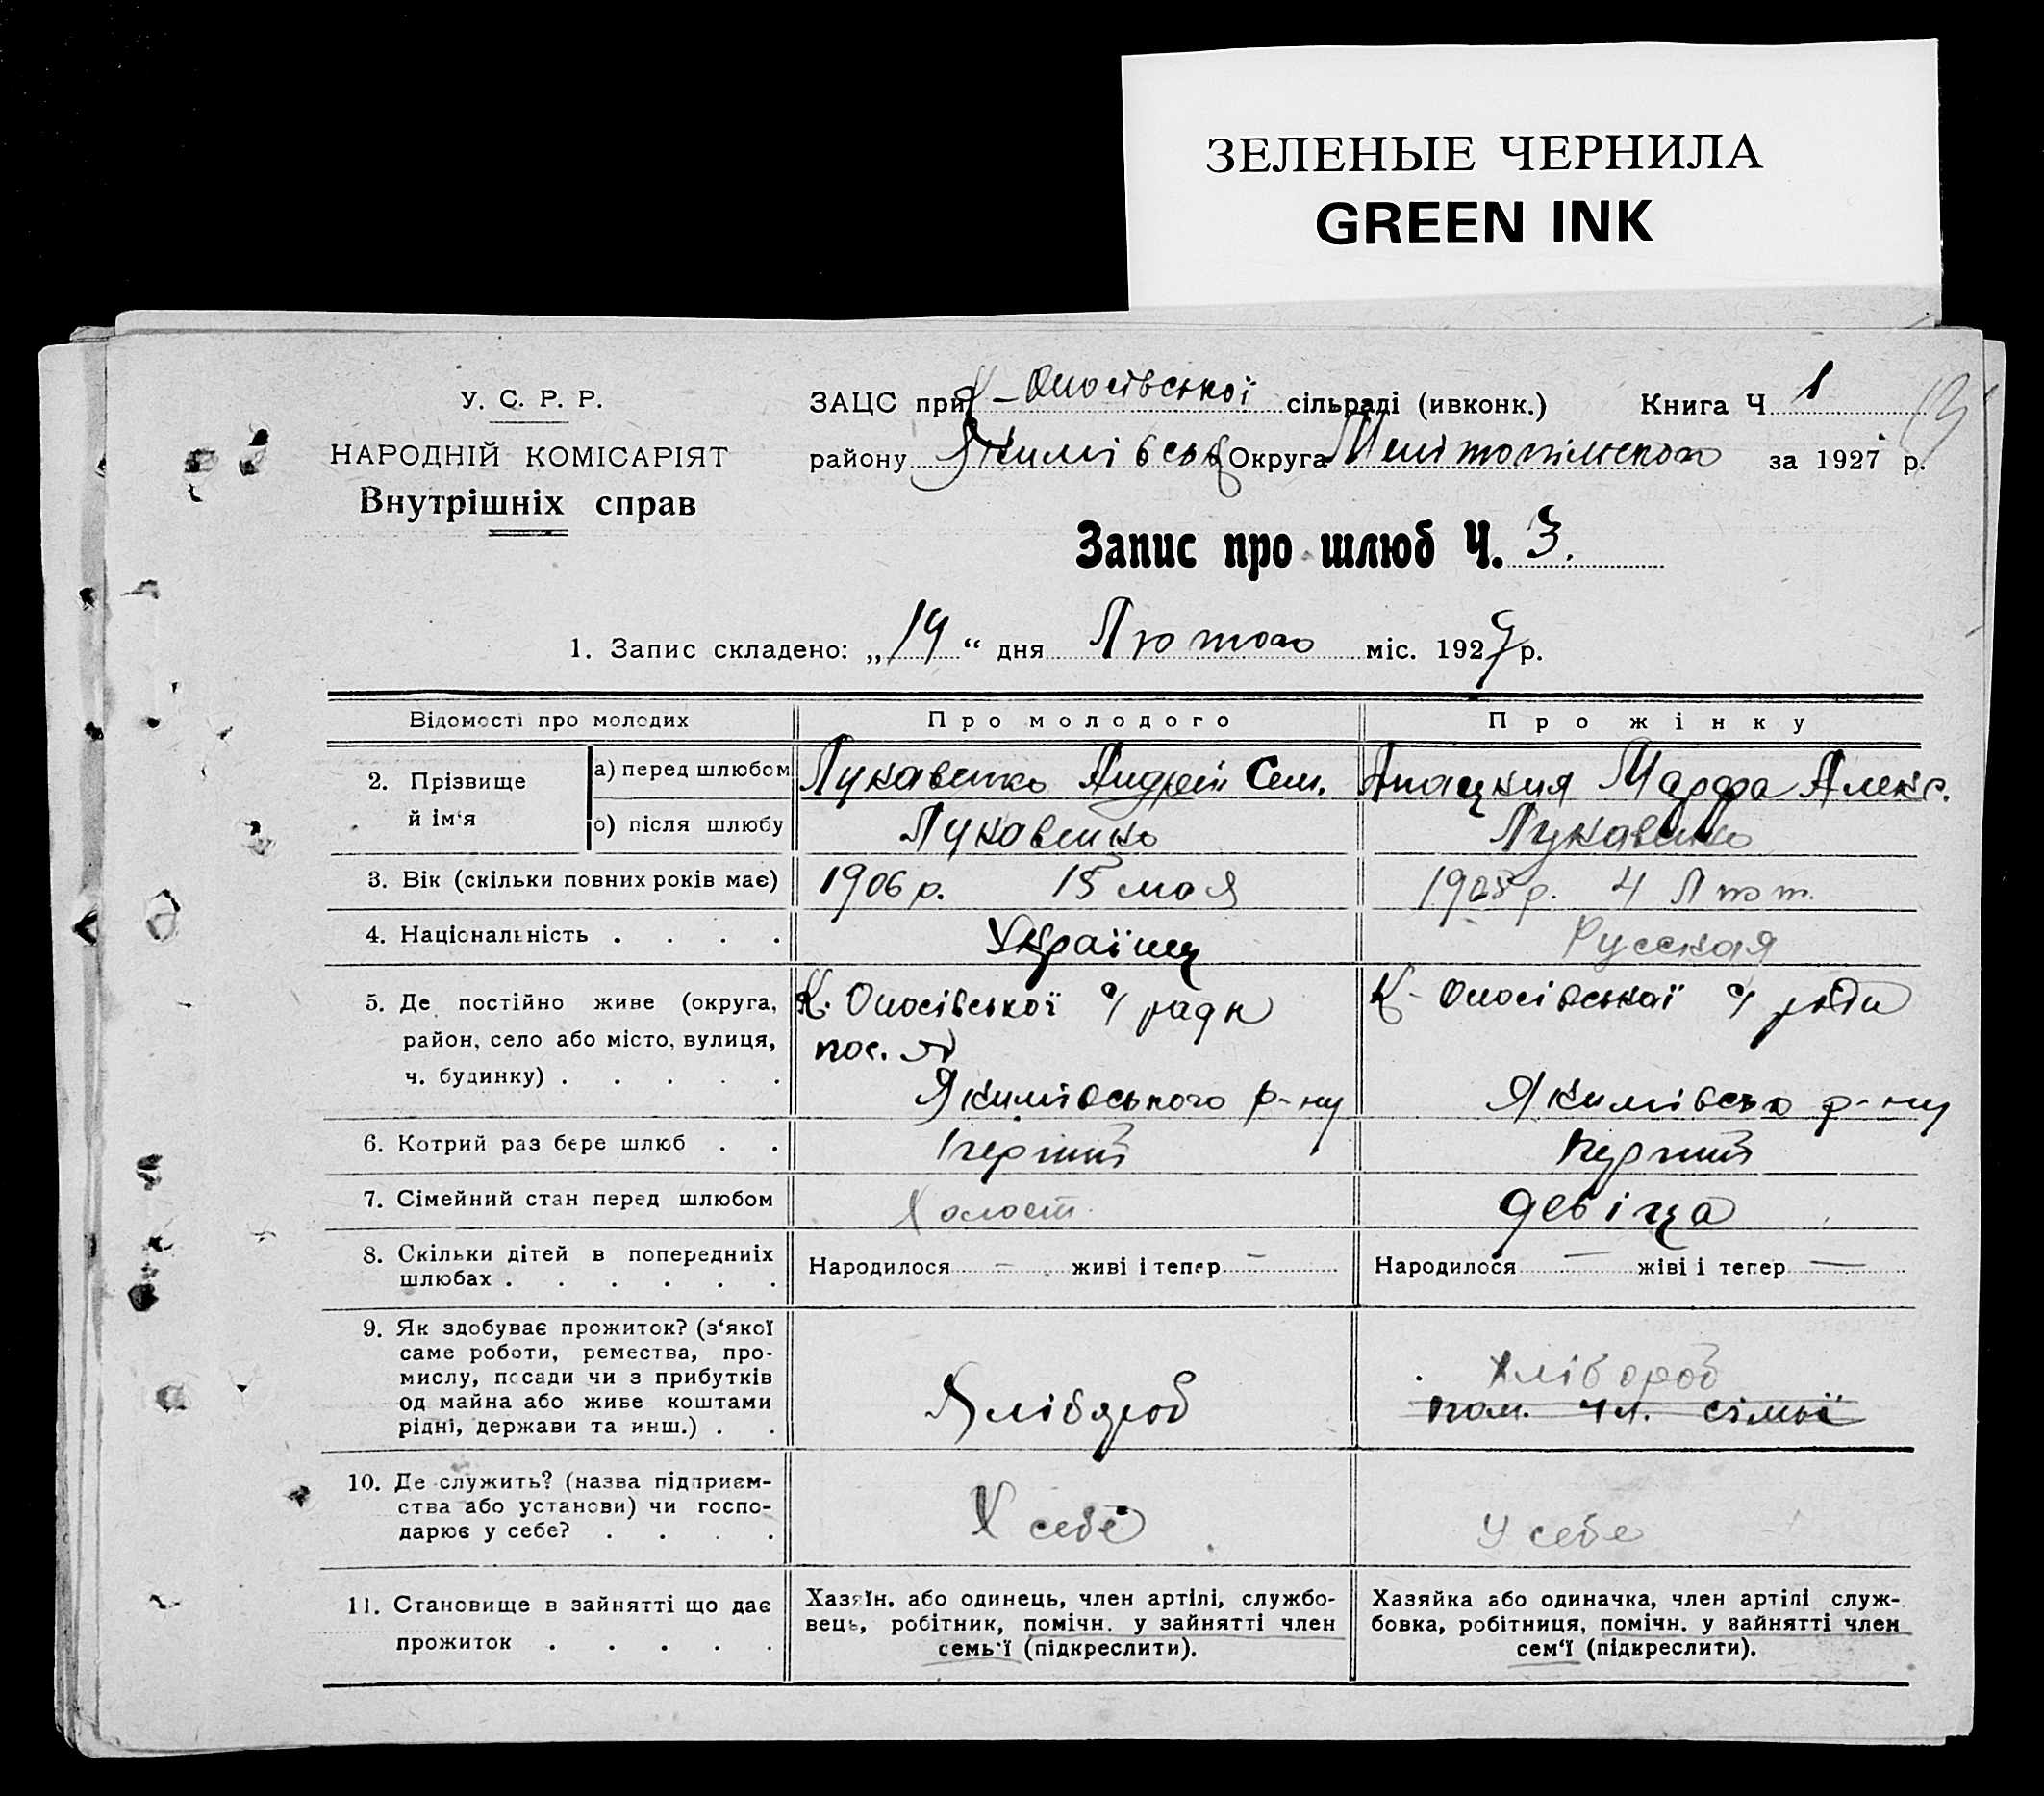 ЗЕЛЕНЫЕ ЧЕРНИЛА
GREEN INK
У. С. Р. Р.
НАРОДНІЙ КОМІСАРІЯТ
Внутрішніх справ
ЗАЦС при сільраді (ивконк.) Книга Ч 1
району Якимівськ Округа Мелітопільского за 1927 р.
Запис про шлюб Ч. 3.
1. Запис складено: „19“ дня Лютого міс. 1927 р.
Відомості про молодих Про молодого Про жінку
2. Прізвище й ім‘я
а) перед шлюбом Лукавенко Андрей Сем. Марфа Алекс.
о) після шлюбу Лукавенко Лукавенко
3. Вік (скільки повних років має) 1906 р. 15 мая 4 Лют.
4. Національність . . . . Українц Русская
5. Де постійно живе (округа, район, село або місто, вулиця, ч. будинку) . . . . .
с/ радн
Якимівського р-ну
с/ ради
Якимівсько р-ну
6. Котрий раз бере шлюб . . перший перший
7. Сімейний стан перед шлюбом Холост. девіца
8. Скільки дітей в попередниіх шлюбах . . . . . .
Народилося – живі і тепер –
Народилося — жіві і тепер —
9. Як здобуває прожиток? (з‘якої
саме роботи, ремества, про-
мислу, посади чи з прибутків
од майна або живе коштами
рідні, держави та инш.) . .
Хлібороб
Хлібороб
пом. чл. сімьї
10. Де служить? (назва підприєм-
ства або установи) чи госпо-
дарює у себе? . . . .
У себе
У себе
11. Становище в зайнятті що дає
прожиток . . . . .
Хазяїн, або одинець, член артілі, службо-
вець, робітник, помічн. у зайнятті член
семь‘ї (підкреслити).
Хазяйка або одиначка, член артілі служ-
бовка, робітниця, помічн. у зайнятті член
сем‘ї (підкреслити).